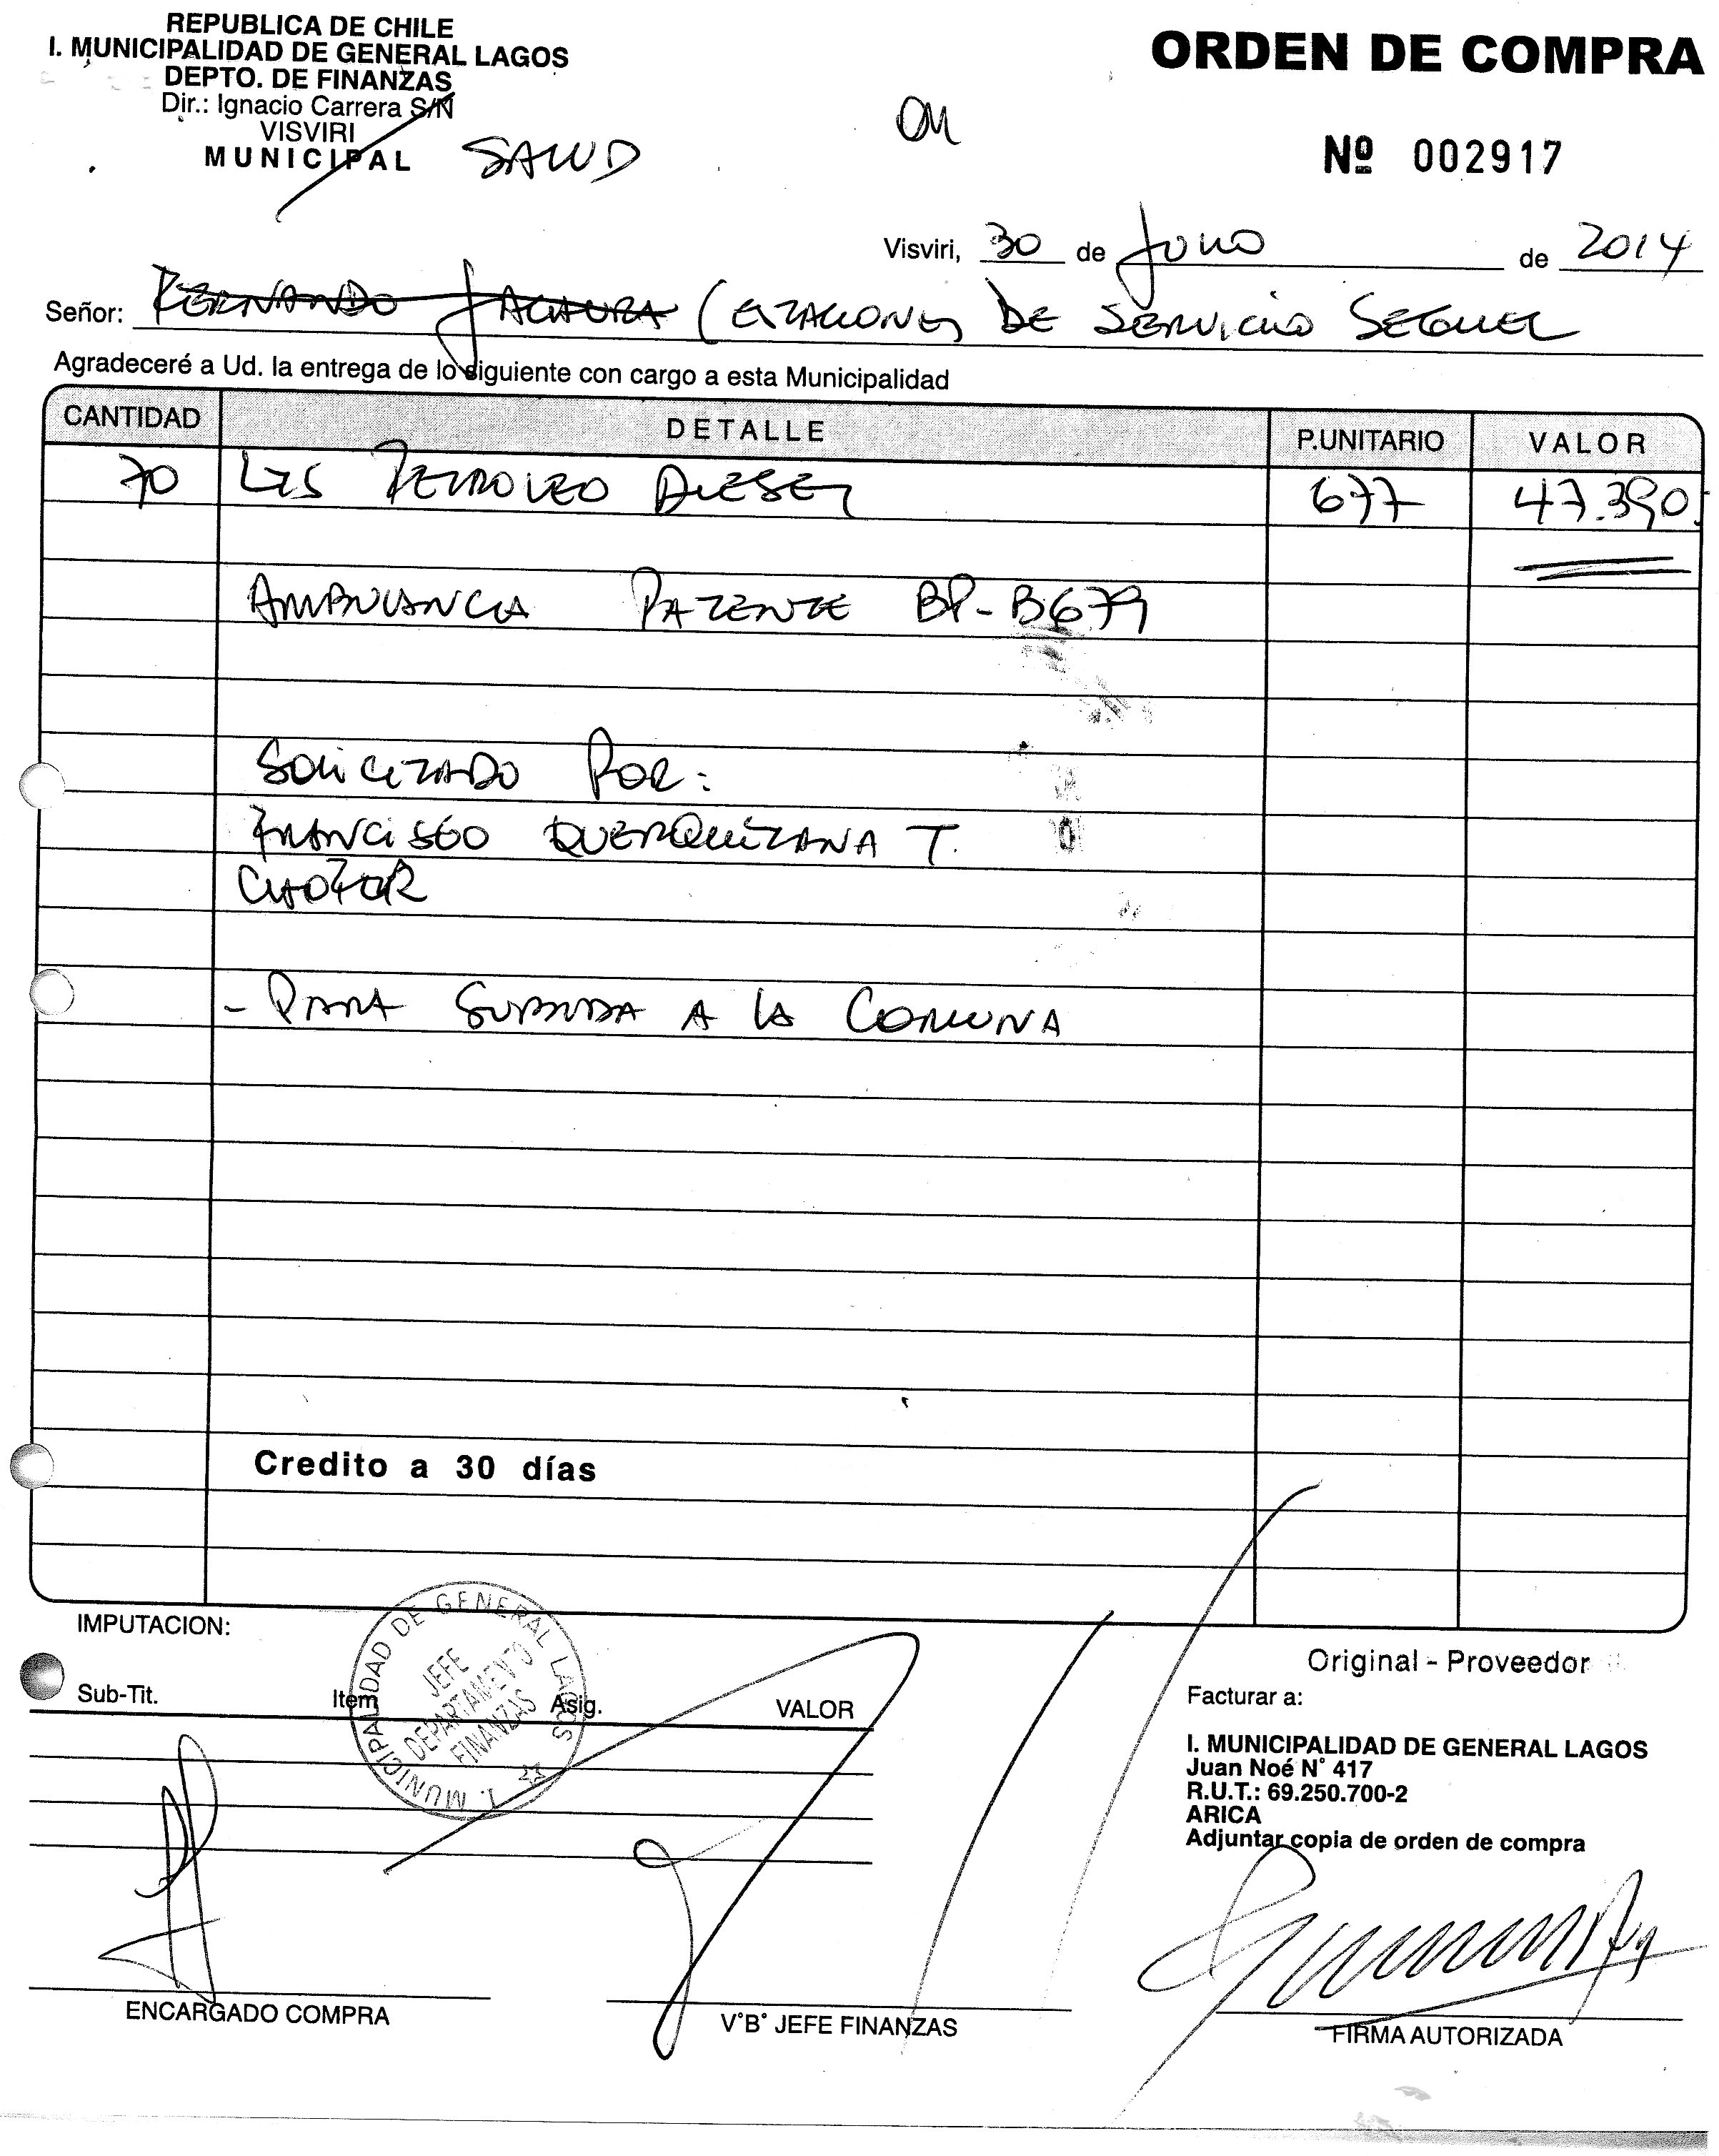 REPUBLICA DE CHILE
I. MUNICIPALIDAD DE GENERAL LAGOS
DEPTO. DE FINANZAS
Dir.: Ignacio Carrera S/N
VISVIRI
MUNICIPAL SALUD
ORDEN DE COMPRA
Nº 002917
Visviri, 30 de Julio de 2014
Señor: Fernando (Estaciones de Servicio Seguel
Agradeceré a Ud. la entrega de lo siguiente con cargo a esta Municipalidad
CANTIDAD DETALLE P.UNITARIO VALOR
70 Lts Petroleo Diesel 677 47.390.
Ambulancia Patente BP-B679
Solicitado Por:
Francisco Querquezana T.
Chofer
- Para Subida a la Comuna
Credito a 30 días
IMPUTACION:
Sub-Tit. Item Asig. VALOR
I. MUNICIPALIDAD DE GENERAL LAGOS
JEFE
DEPARTAMENTO
FINANZAS
Original - Proveedor
Facturar a:
I. MUNICIPALIDAD DE GENERAL LAGOS
Juan Noé N° 417
R.U.T.: 69.250.700-2
ARICA
Adjuntar copia de orden de compra
ENCARGADO COMPRA
V°B° JEFE FINANZAS
FIRMA AUTORIZADA